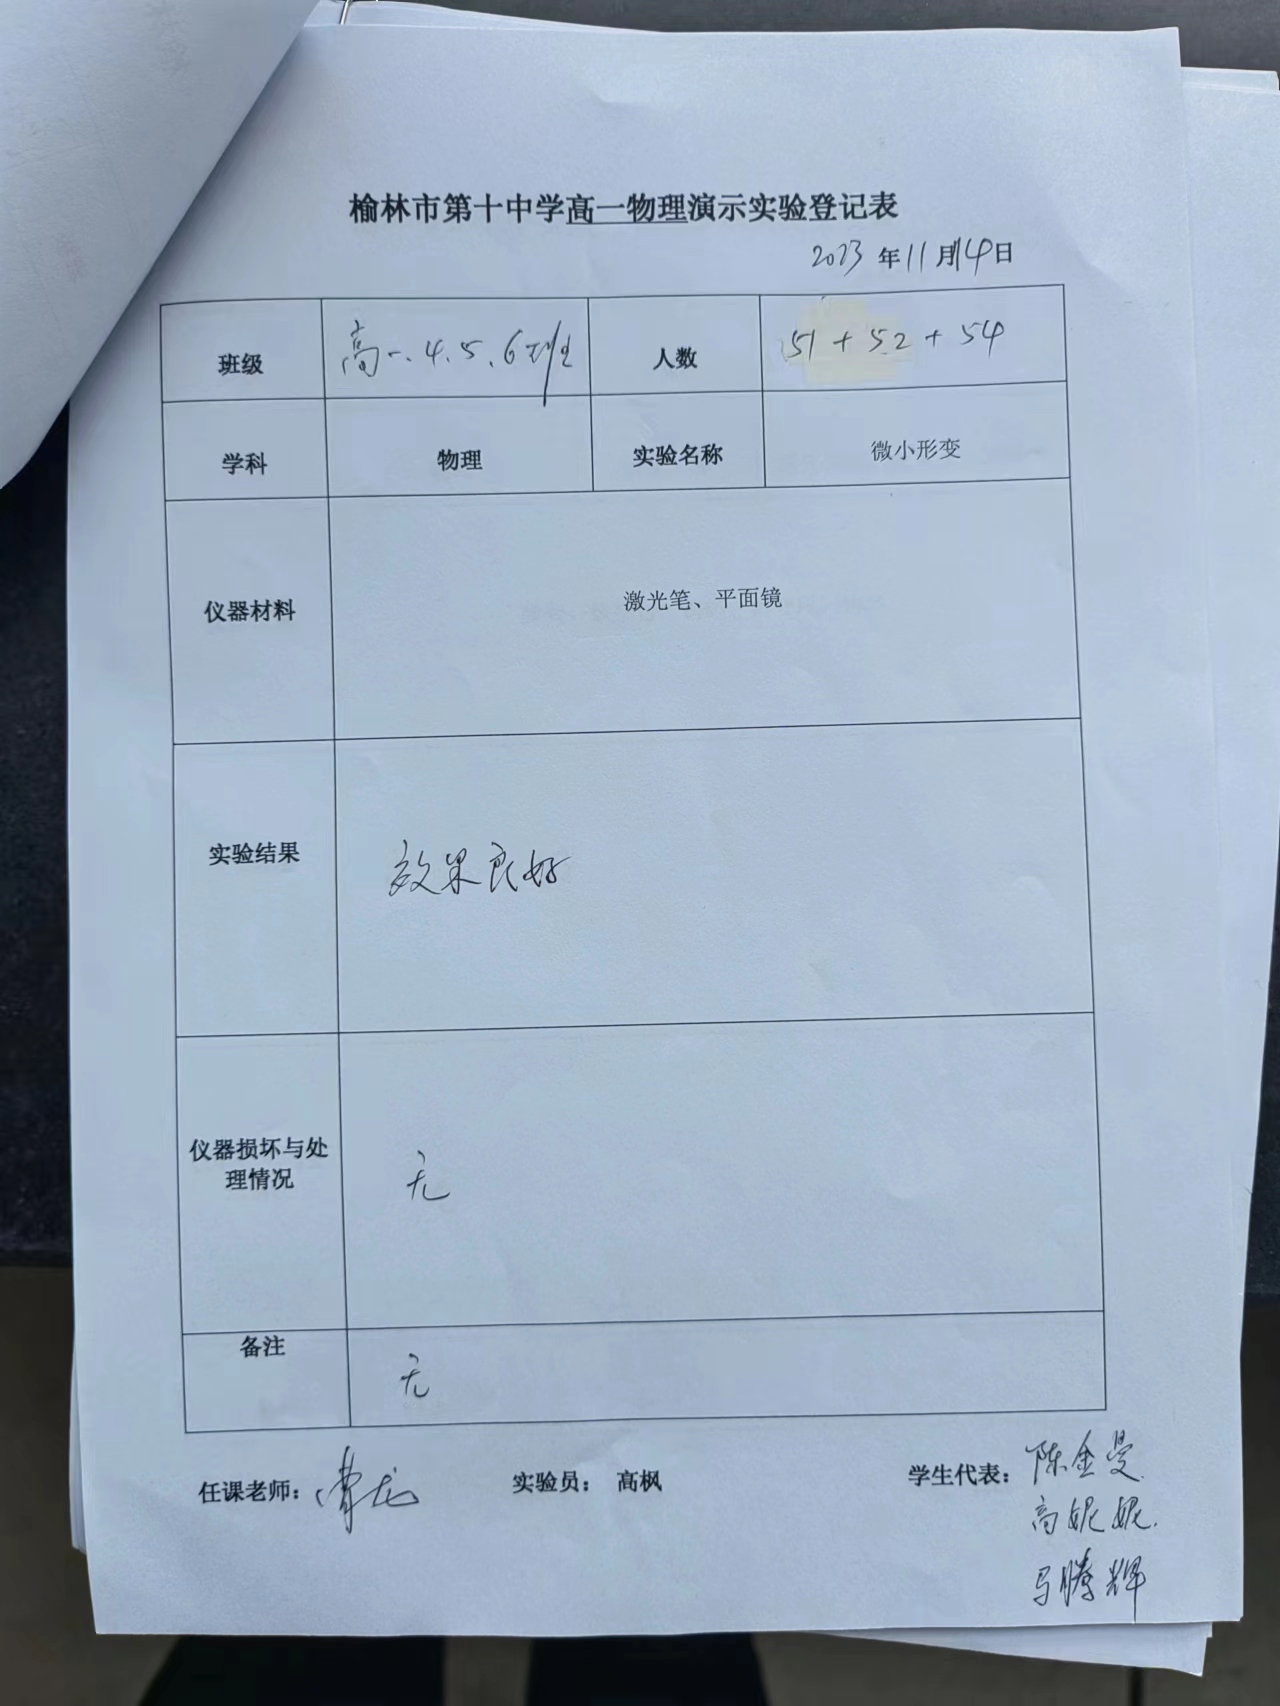 榆林市第十中学高一物理演示实验登记表
2023 年 11 月 14 日
班级 高一.4.5.6班 人数 51 + 52 + 54
学科 物理 实验名称 微小形变
仪器材料 激光笔、平面镜
实验结果 效果良好
仪器损坏与处
理情况 无
备注 无
任课老师: 曹龙 实验员: 高枫 学生代表: 陈金曼.
高妮妮.
马腾辉